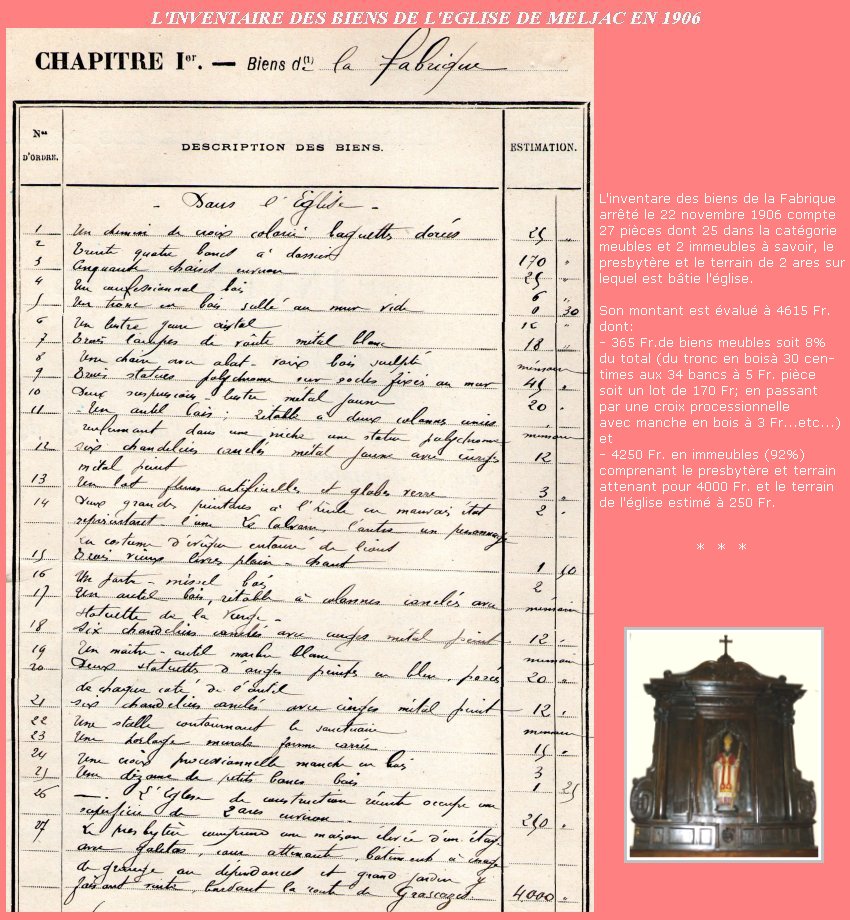 L'INVENTAIRE DES BIENS DE L'EGLISE DE MELJAC EN 1906
CHAPITRE Ier. — Biens d(1) la fabrique
Nos D'ORDRE. DESCRIPTION DES BIENS. ESTIMATION.
- Dans l'Eglise -
1 Un chemin de croix colorié baguettes dorées 25 "
2 Trente quatre bancs à dossier 170 "
3 Cinquante chaises environ 25 "
4 Un confessionnal bois 6 "
5 Un tronc en bois scellé au mur vide 0 30
6 Un lustre jaune cristal "
7 Trois lampes de voûte métal blanc 18 "
8 Une chaire avec abat-voix bois sculpté mémoire
9 Trois statues polychrome sur socles fixés au mur 45 "
10 Deux suspensions-lustre métal jaune 20 "
11 - Un autel bois; rétable à deux colonnes
renfermant dans une niche une statue polychrome mémoire
12 Six chandeliers canelés métal jaune avec cierges 12
métal peint
13 Un lot fleurs artificielles et globes verre 3 "
14 Deux grandes peintures à l'huile en mauvais état 2 "
représentant l'une le Calvaire, l'autre un personnage
en costume d'évêque entouré de lions
15 Trois vieux livres plain-chant 1 50
16 Un porte-missel bois 2
17 Un autel bois, rétable à colonnes canelés avec mémoire
statuette de la Vierge -
18 Six chandeliers canelés avec cierges métal peint 12 "
19 Un maître-autel marbre blanc mémoire
20 Deux statuettes d'anges peints en bleu, posés 20 "
de chaque coté de l'autel
21 Six chandeliers canelés avec cierges métal peint 12 "
22 Une stalle contournant le sanctuaire mémoire
23 Une horloge murale forme carrée 15 "
24 Une croix processionnelle manche en bois 3
25 Une dizaine de petits bancs bois 1 25
26 —. L'Eglise de construction récente occupe une
superficie de 2 ares environ. 250 "
27 Le presbytère comprend une maison élevée d'un étage
avec galetas, cour attenante, bâtiments à usage
de grange ou dépendances et grand jardin y
faisant suite, bordant la route de 4.000 "
L'inventare des biens de la Fabrique
arrêté le 22 novembre 1906 compte
27 pièces dont 25 dans la catégorie
meubles et 2 immeubles à savoir, le
presbytère et le terrain de 2 ares sur
lequel est bâtie l'église.
Son montant est évalué à 4615 Fr.
dont:
- 365 Fr.de biens meubles soit 8%
du total (du tronc en boisà 30 cen-
times aux 34 bancs à 5 Fr. pièce
soit un lot de 170 Fr; en passant
par une croix processionnelle
avec manche en bois à 3 Fr...etc...)
et
- 4250 Fr. en immeubles (92%)
comprenant le presbytère et terrain
attenant pour 4000 Fr. et le terrain
de l'église estimé à 250 Fr.
* * *